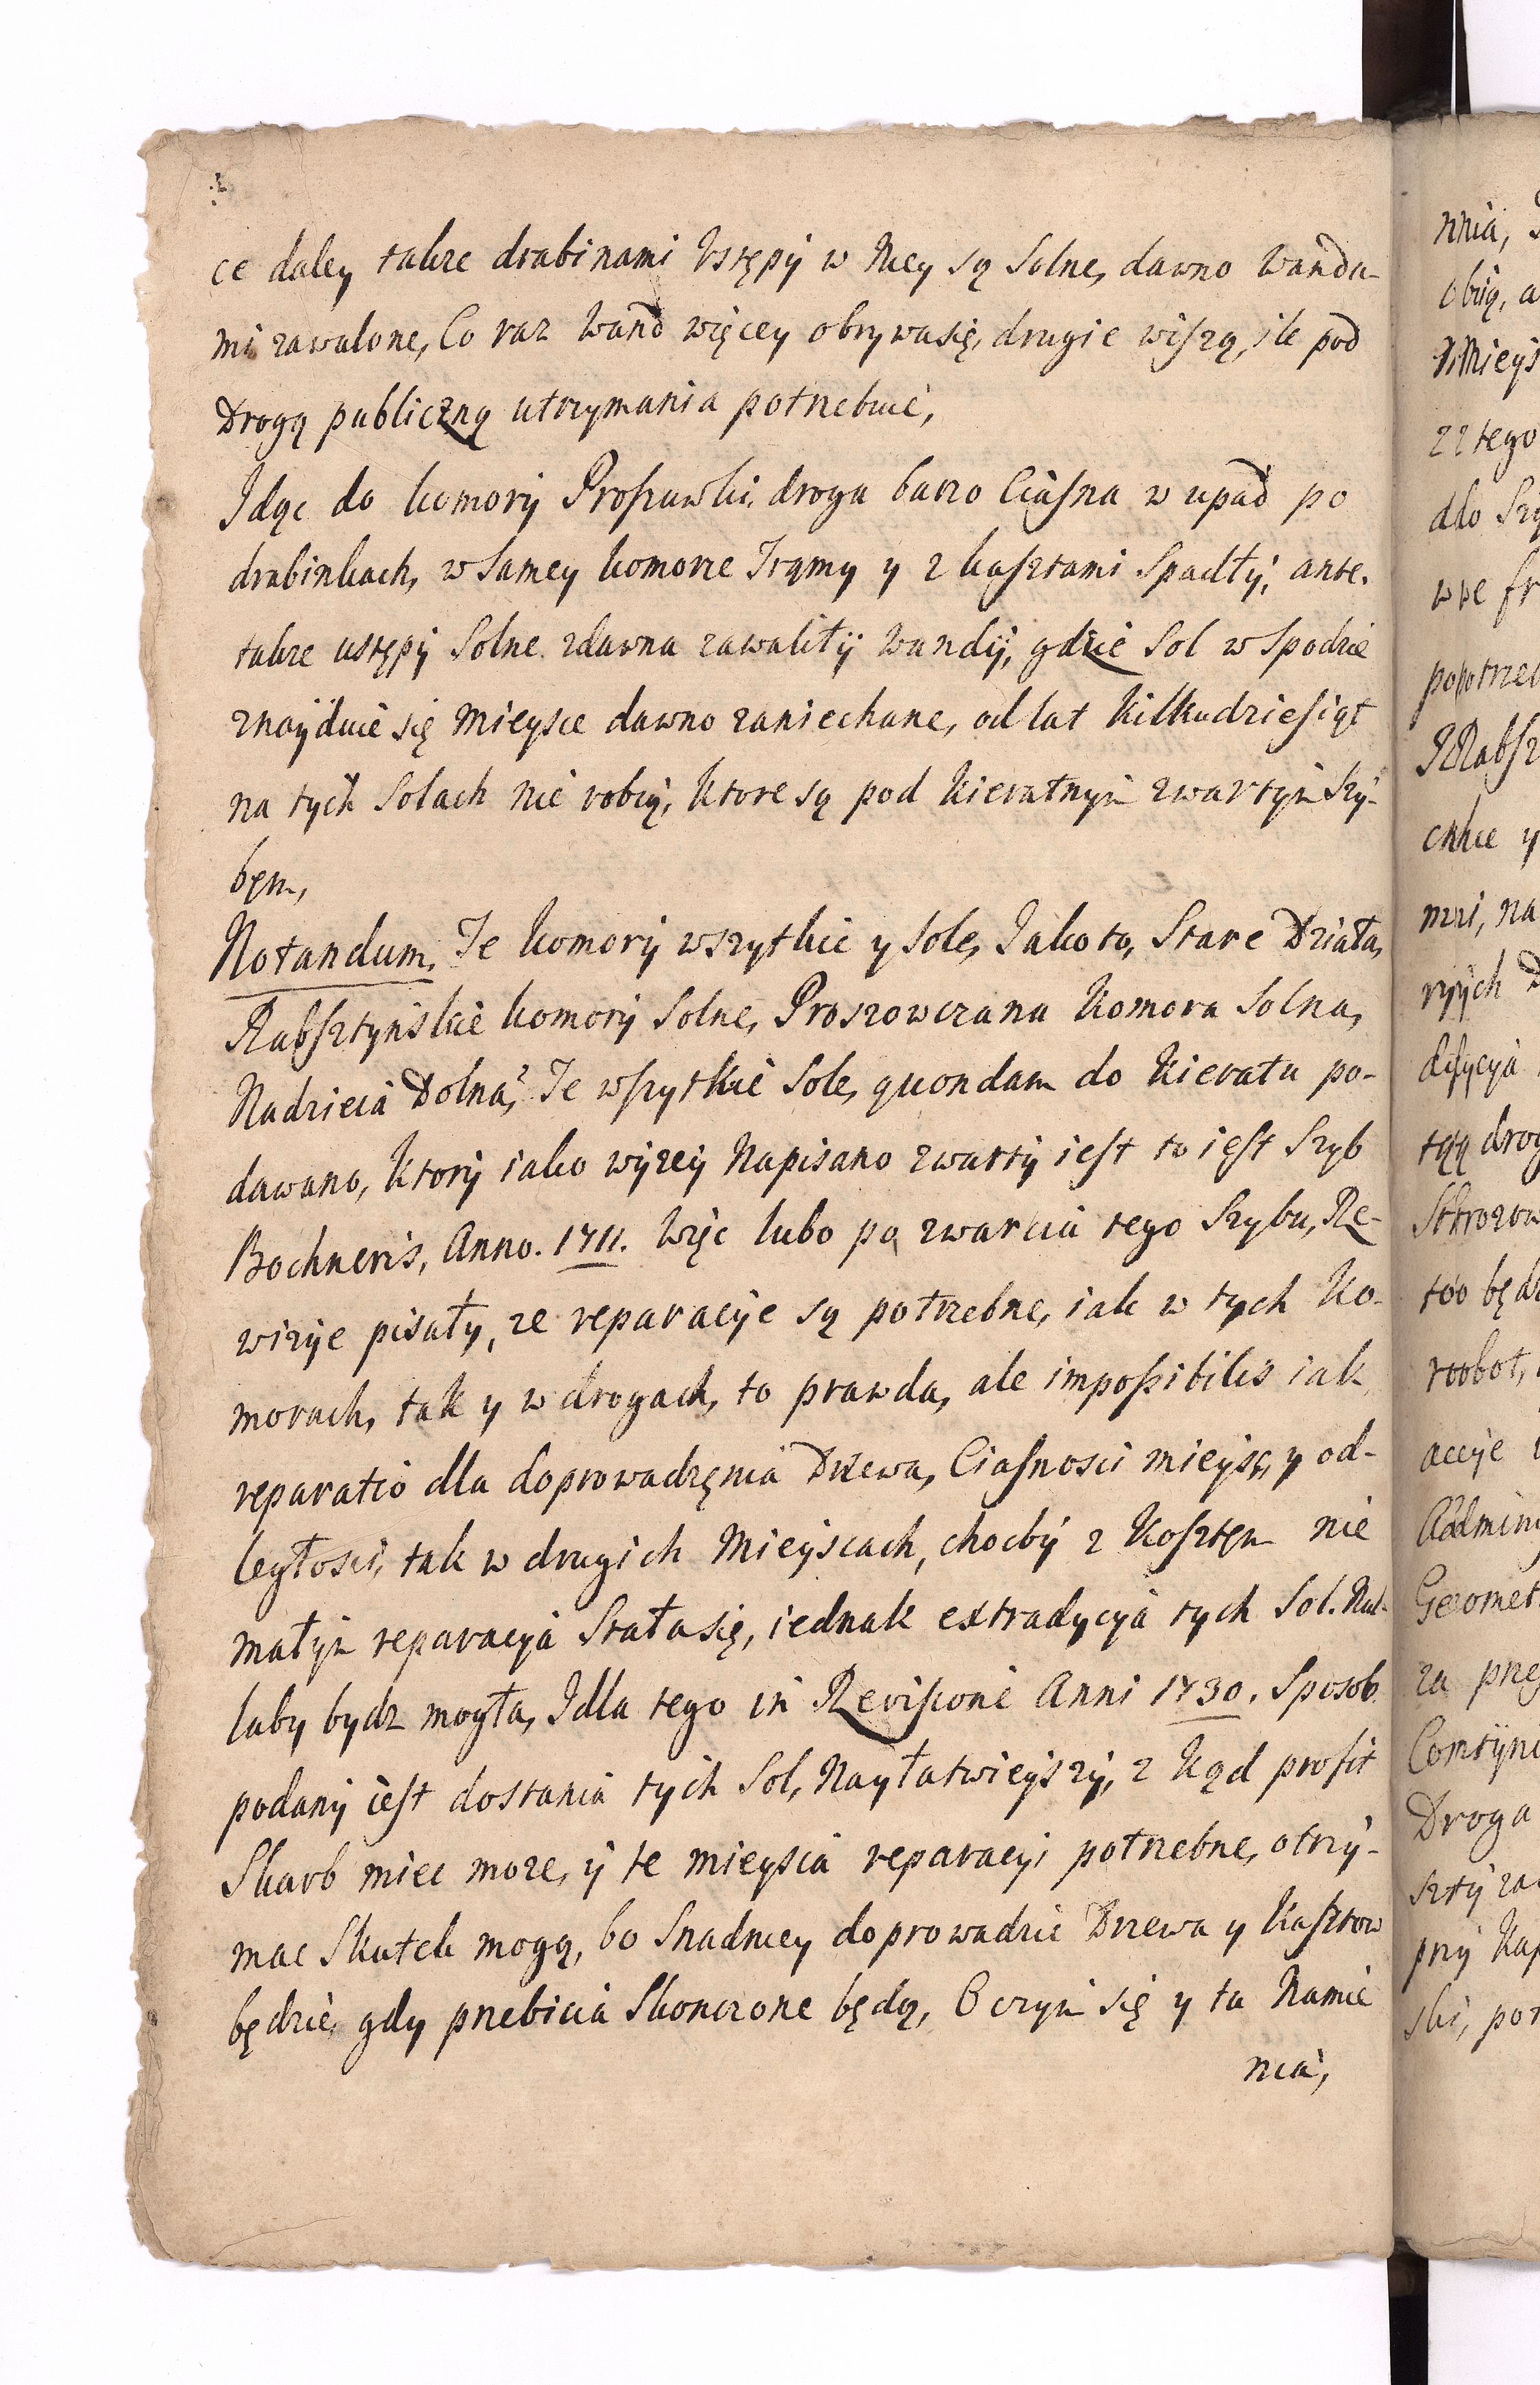 ce daley takze drabinami Vstępÿ w Niey są Solne, dawno Wanda-
mi zawalone, Co raz Wand więcey obrywasię, drugie wiszą, ile pod
Drogą publiczną utrzymania potrzebuie,
Idąc do komorÿ Proszuwki, droga barzo Ciasna w upad po
drabinkach, w Samey komorze Tramy y z kasztami Spadły, ante.
takze ustępÿ Solne zdawna zawaliłÿ Wandÿ, gdzie Sol w Spodzie
znayduie się Mieysce dawno zaniechane, od lat Kilkudziesiąt
na tych Solach nie robią, Ktore są pod Kieratnym zwartym Szy-
bęm,
Notandum, Te komorÿ wszytkie y Sole, Jako to, Stare Działa,
Rabsztynskie komorÿ Solne, Proszowczana Komora Solna,
Nadzieia Dolna, Te wszytkie Sole, quondam do Kieratu po-
dawano, Ktorÿ iako wyzeÿ Napisano zwartÿ iest to iest Szyb
Bochneris, Anno. 1711. Więc lubo po zwarciu tego Szybu, Re-
wizye pisały, ze reparacye są potrzebne, iak w tych Ko-
morach, tak y w drogach, to prawda, ale impossibilis iak
reparatio dla doprowadzęnia Drzewa, Ciasnosci mieysc, y od-
legtosci, tak w drugich Mieyscach, chocbÿ z Kosztęm nie
małym reparacyia Stałasię, iednak extradycyia tych Sol. Nul-
laby bydz mogła, Idla tego in Revisione Anni 1730. Sposob
podanÿ iest dostania tych Sol, Nayłatwieyszy, z Kąd profit
Skarb miec moze, ÿ te mieysca reparacyi potrzebne, otrzy-
mac Skutek mogą, bo Snadniey doprowadzic Drzewa y Kasztow
będzie, gdy przebicia Skonczone będą, O czym się y tu Namie
nia,